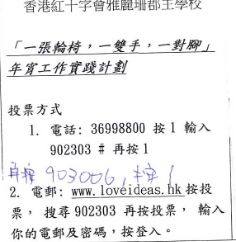 香港紅十字會雅麗珊郡主學校
「一張輪椅，一雙手，一對腳」
年宵工作實踐計劃
投票方式
1. 電話: 36998800 按1 輸入
902303 # 再按1
再按 903006, 1
2. 電郵: www.loveideas.hk 按投
票， 搜尋 902303 再按投票， 輸入
你的電郵及密碼，按登入。